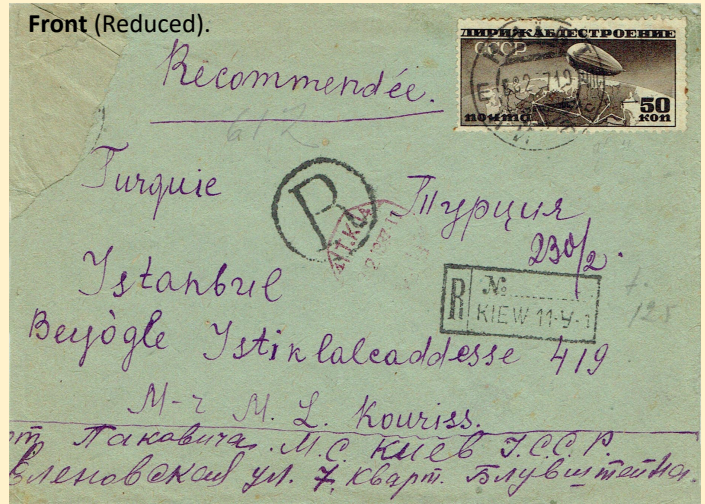 Front (Reduced).
ДИРИЖАБЛЕСТРОЕНИЕ
СССР
почта 50 коп
Recommendée.
612
Turquie
R
Турция
230/2.
Istanbul
R №
KIEW 11-У-1
125
Beyógle Istiklalcaddesse 419
M-r M. L. Kouriss.
Паковича. М.С. Киев У.С.С.Р.
Еленовская ул. 7. Кварт. Блувштейна.